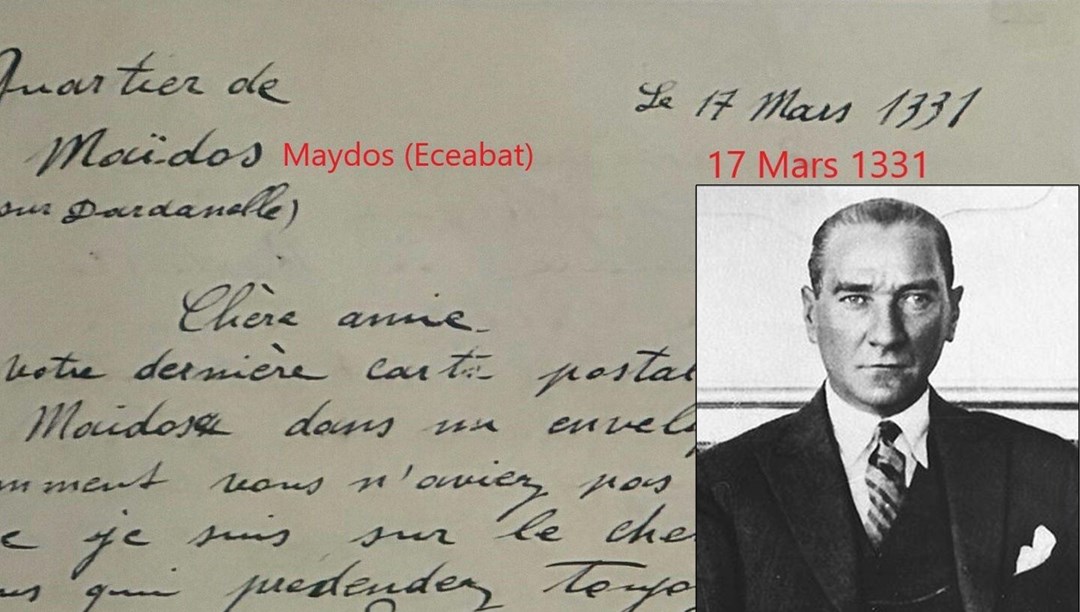 Quartier de
Maïdos
Maydos (Eceabat)
Le 17 Mars 1331
17 Mars 1331
sur Dardanelle)
Chère amie
votre dernière carte postal
Maidos dans un envelo
mment vous n'aviez pas
e je suis sur le che
us qui prétendez toujo